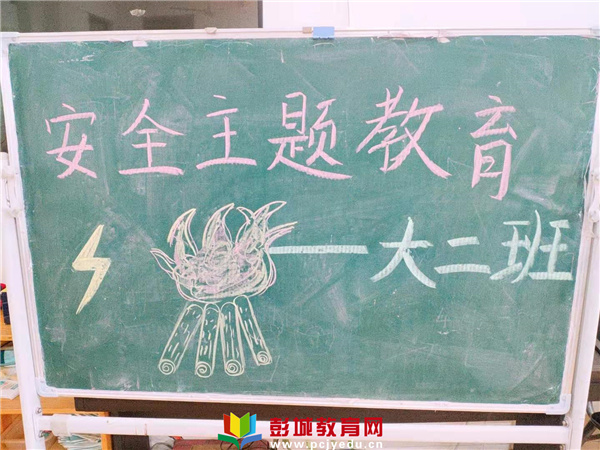 安全主题教育
——大二班
彭城教育网
www.pcjyedu.cn